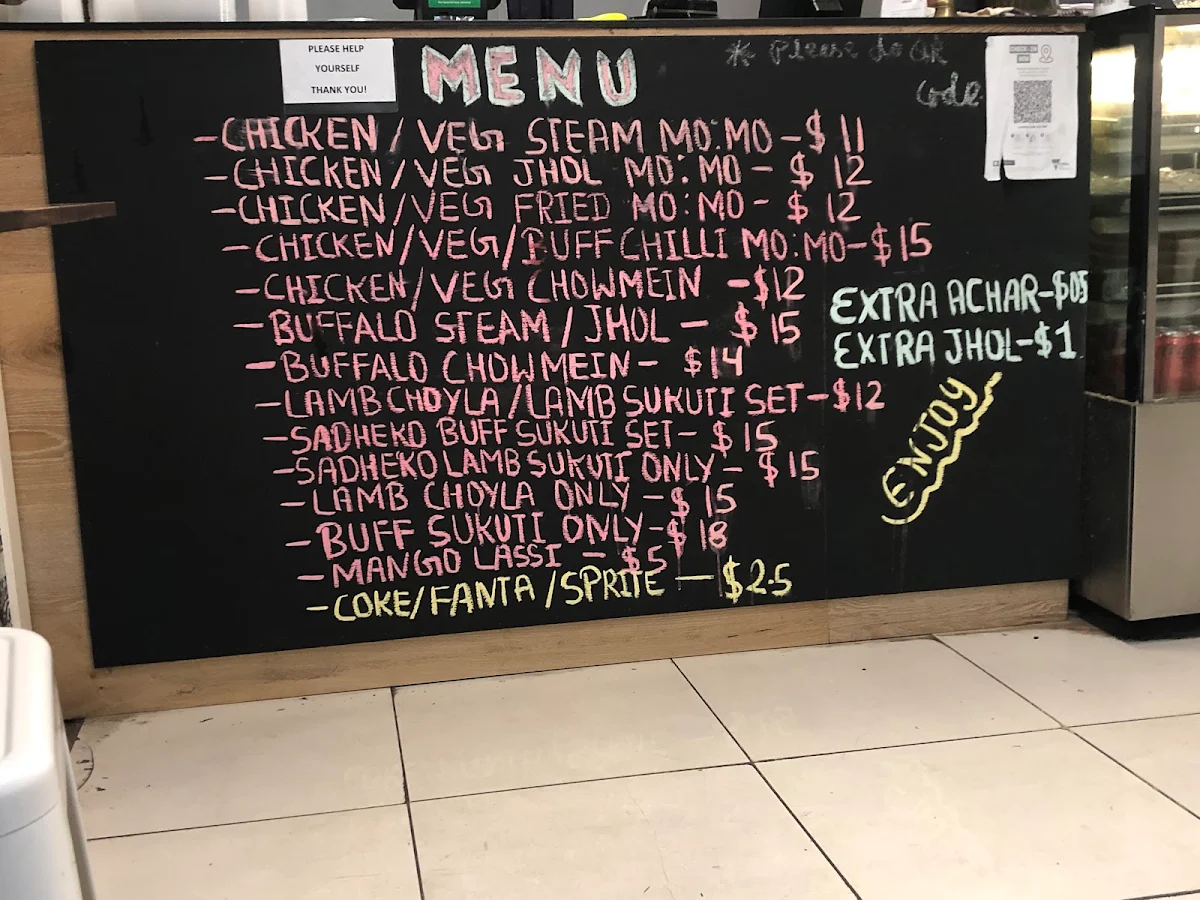 PLEASE HELP
YOURSELF
THANK YOU!
MENU
* Please do QR
code
CHECK-IN
-CHICKEN/VEG STEAM MO:MO-$11
-CHICKEN/VEG JHOL MO:MO- $12
-CHICKEN/VEG FRIED MO:MO- $12
-CHICKEN/VEG/BUFF CHILLI MO:MO-$15
-CHICKEN/VEG CHOWMEIN -$12
-BUFFALO STEAM/JHOL - $15
-BUFFALO CHOWMEIN- $14
-LAMB CHOYLA/LAMB SUKUTI SET-$12
-SADHEKO BUFF SUKUTI SET- $15
-SADHEKO LAMB SUKUTI ONLY- $15
-LAMB CHOYLA ONLY -$15
-BUFF SUKUTI ONLY-$18
-MANGO LASSI - $5
-COKE/FANTA/SPRITE - $2.5
EXTRA ACHAR-$05
EXTRA JHOL-$1
ENJOY